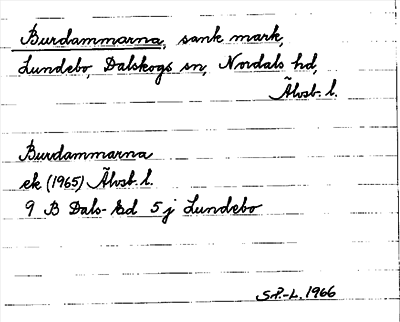 Burdammarna, sank mark,
Lundebo, Dalskogs sn, Nordals hd,
Älvsb. l.
Burdammarna
ek (1965) Älvsb. l.
9 B Dals-Ed 5 j Lundebo
S.P.-L. 1966